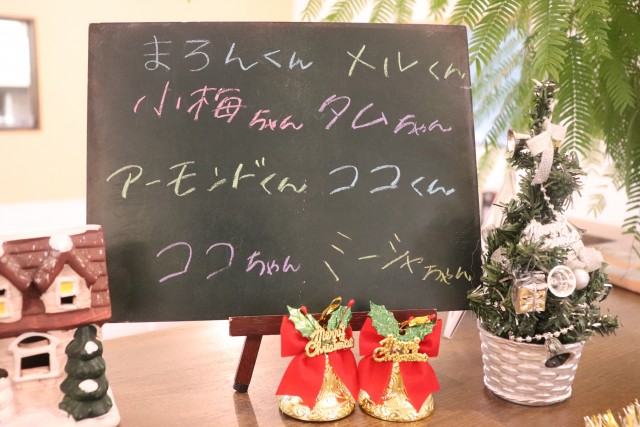 まろんくん メルくん
小梅ちゃん タムちゃん
アーモンドくん ココくん
ココちゃん ミージャちゃん
Merry Christmas
Merry Christmas